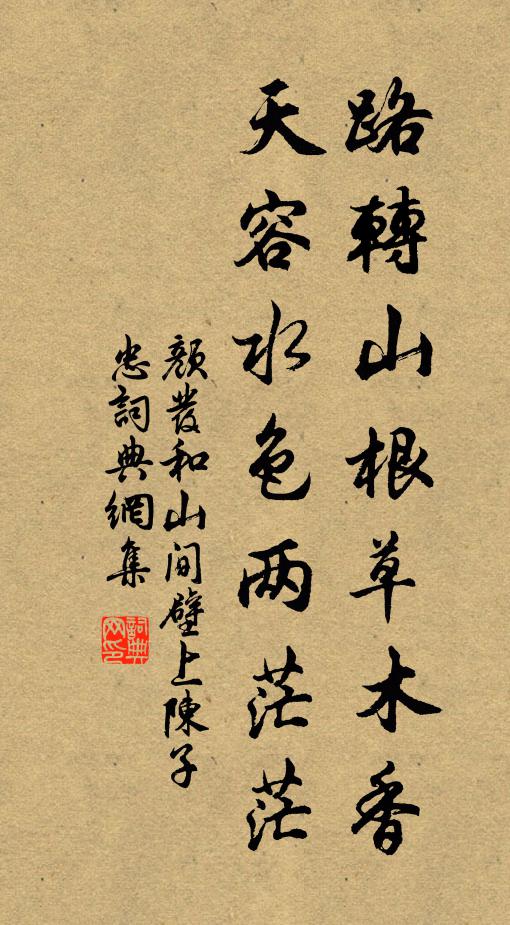 路轉山根草木香
天容水色两茫茫
顏發和山間壁上陳子
忠詞典網集
詞典
网印